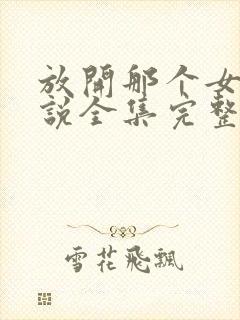 放開那个女
説全集完整
雪花飛飄